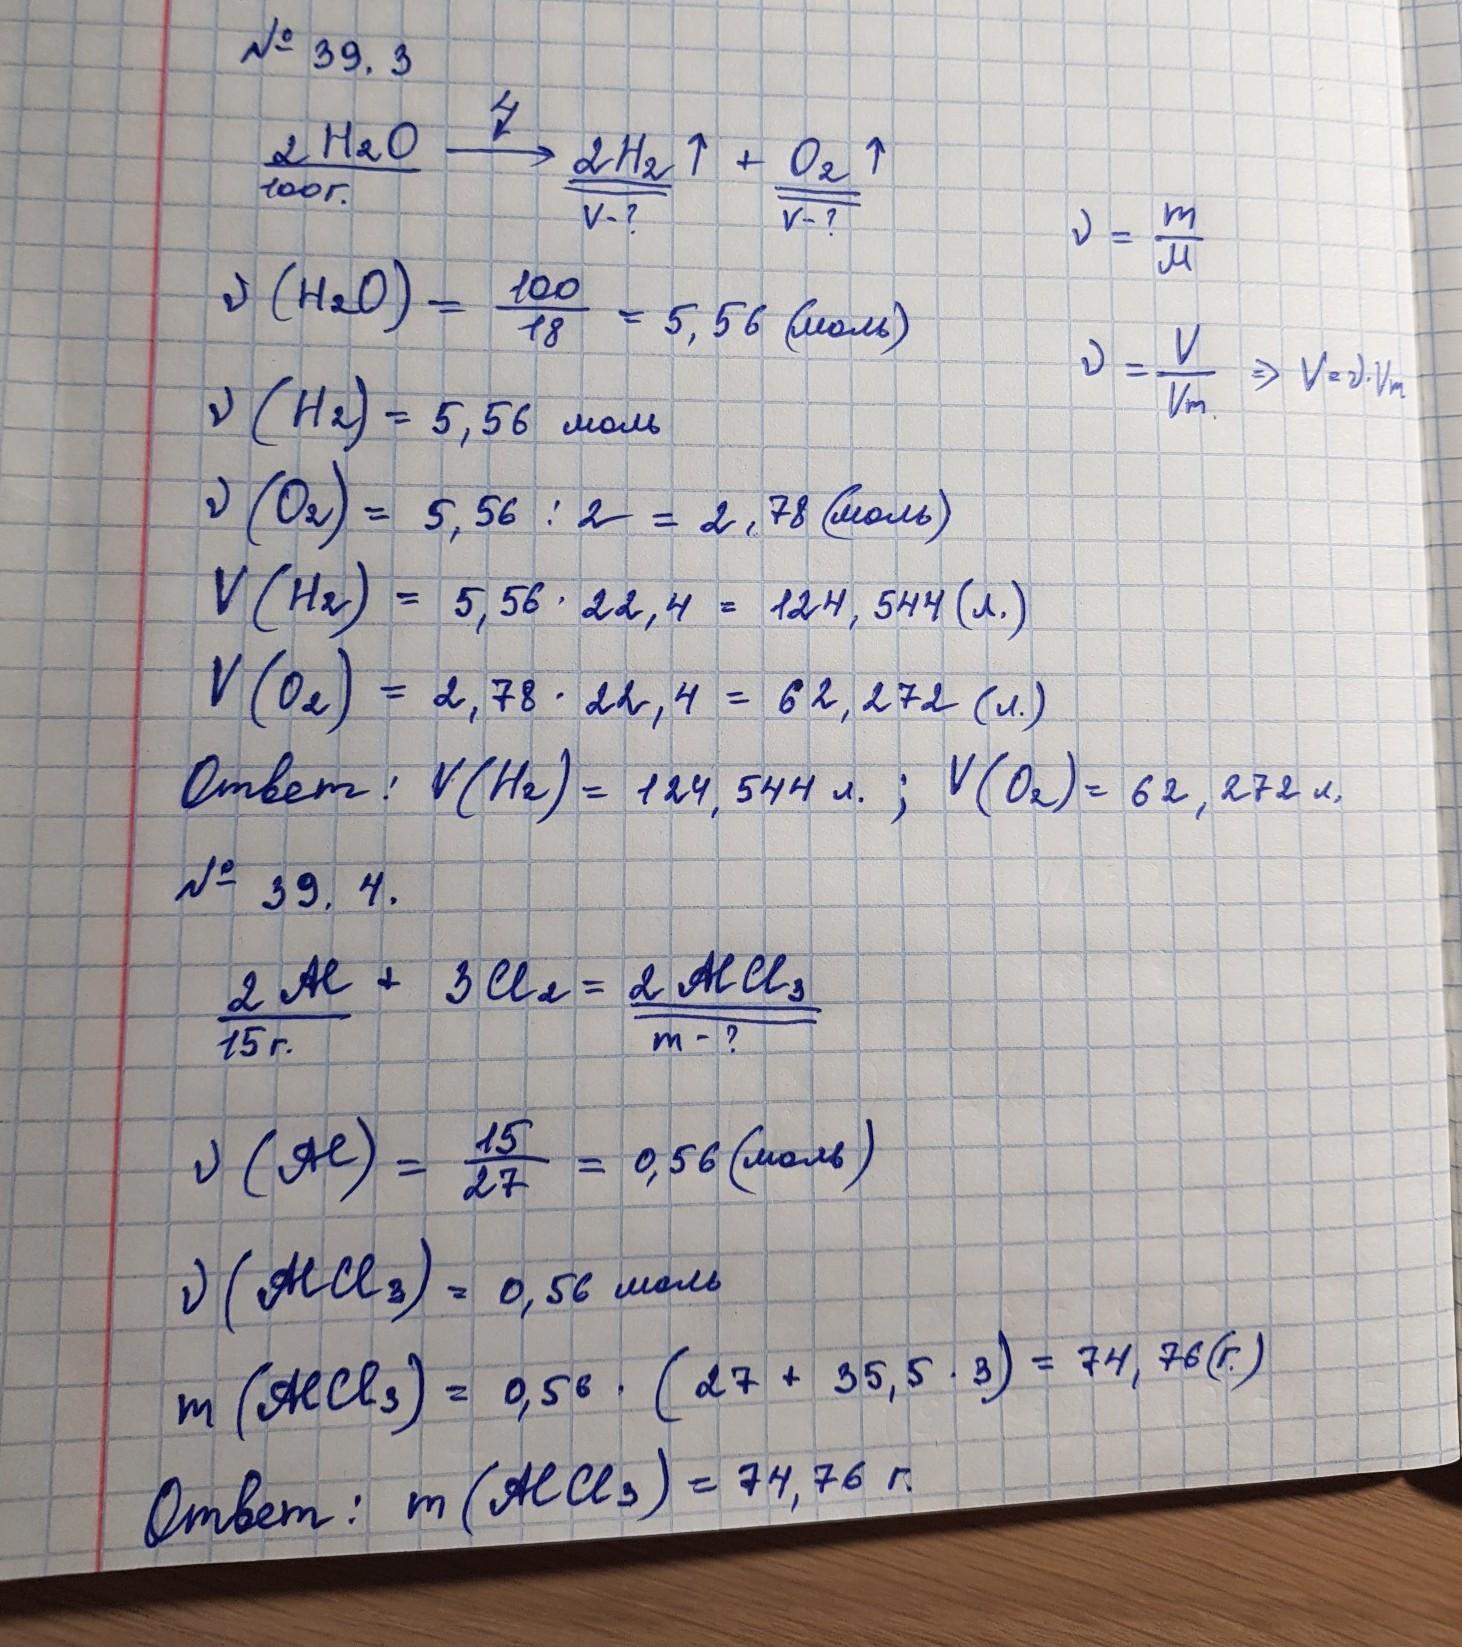 № 39.3
2H₂O → 2H₂↑ + O₂↑
100г. V-? V-?
ν = m/M
ν(H₂O) = 100/18 = 5,56 (моль)
ν = V/Vm. ⇒ V=ν·Vm
ν(H₂) = 5,56 моль
ν(O₂) = 5,56 : 2 = 2,78 (моль)
V(H₂) = 5,56 · 22,4 = 124,544 (л.)
V(O₂) = 2,78 · 22,4 = 62,272 (л.)
Ответ: V(H₂) = 124,544 л. ; V(O₂) = 62,272 л.
№ 39.4.
2Al + 3Cl₂ = 2AlCl₃
15г. m-?
ν(Al) = 15/27 = 0,56 (моль)
ν(AlCl₃) = 0,56 моль
m(AlCl₃) = 0,56 · (27 + 35,5 · 3) = 74,76 (г.)
Ответ: m(AlCl₃) = 74,76 г.